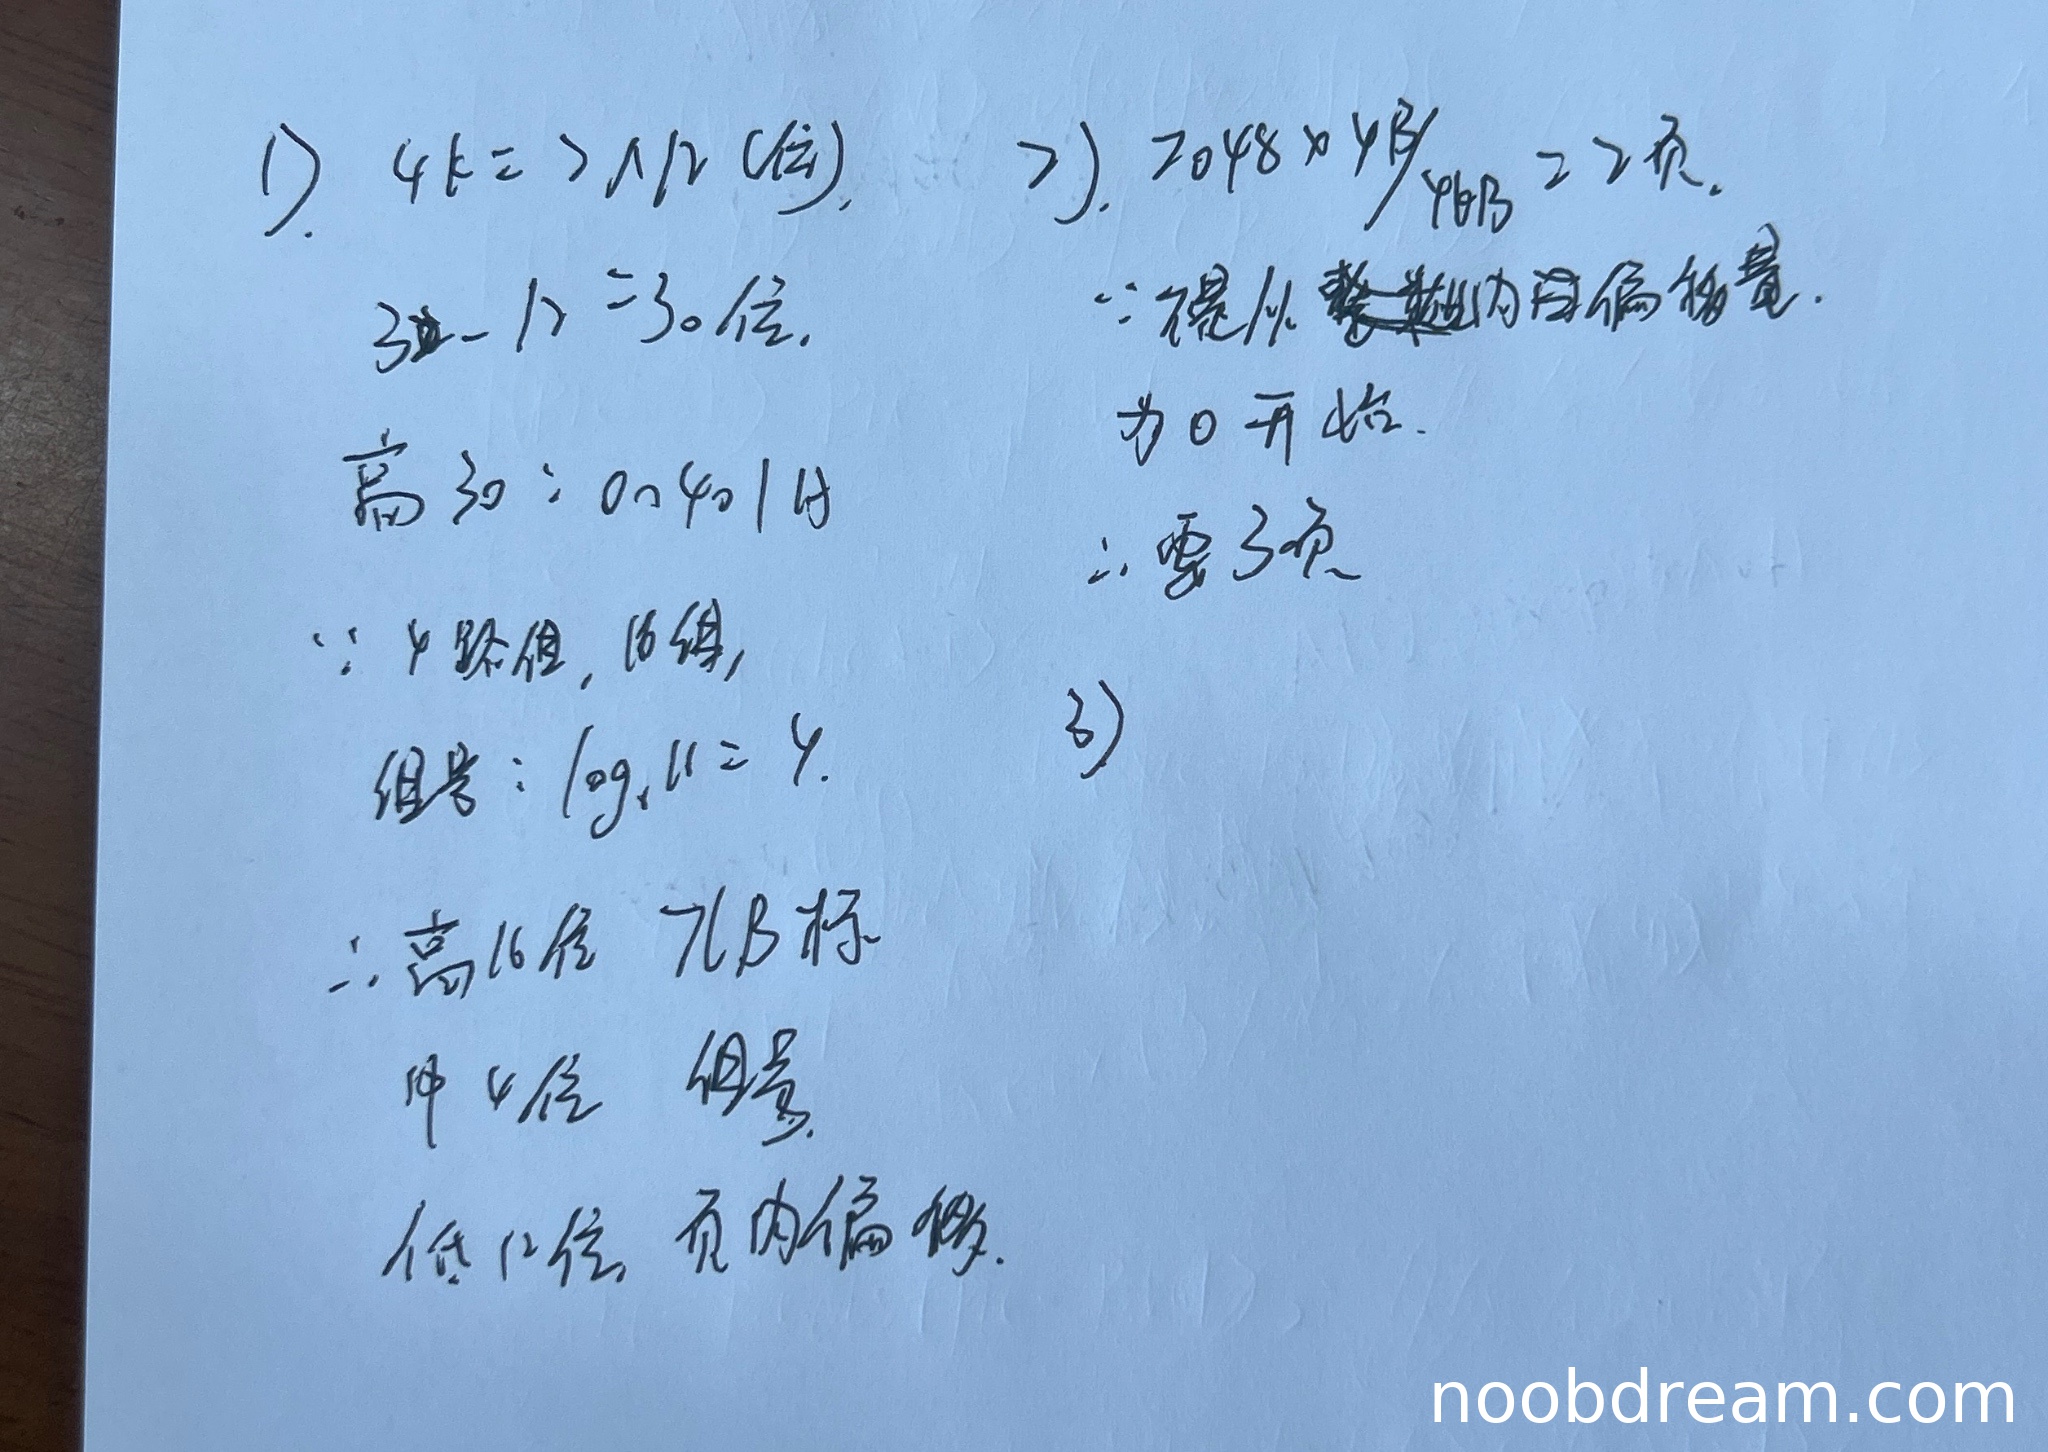 1). 4k = 2^12 (位).
32 - 12 = 30 位.
高 30 : 00401H
∵ 4路组, 16组,
组号: log₂16 = 4.
∴ 高16位 TLB标
中4位 组号.
低12位, 页内偏移.
2). 2048 × 4B/4KB = 2页.
∵ 不是从 内 偏移量.
为0开始.
∴ 要3页
3)
noobdream.com